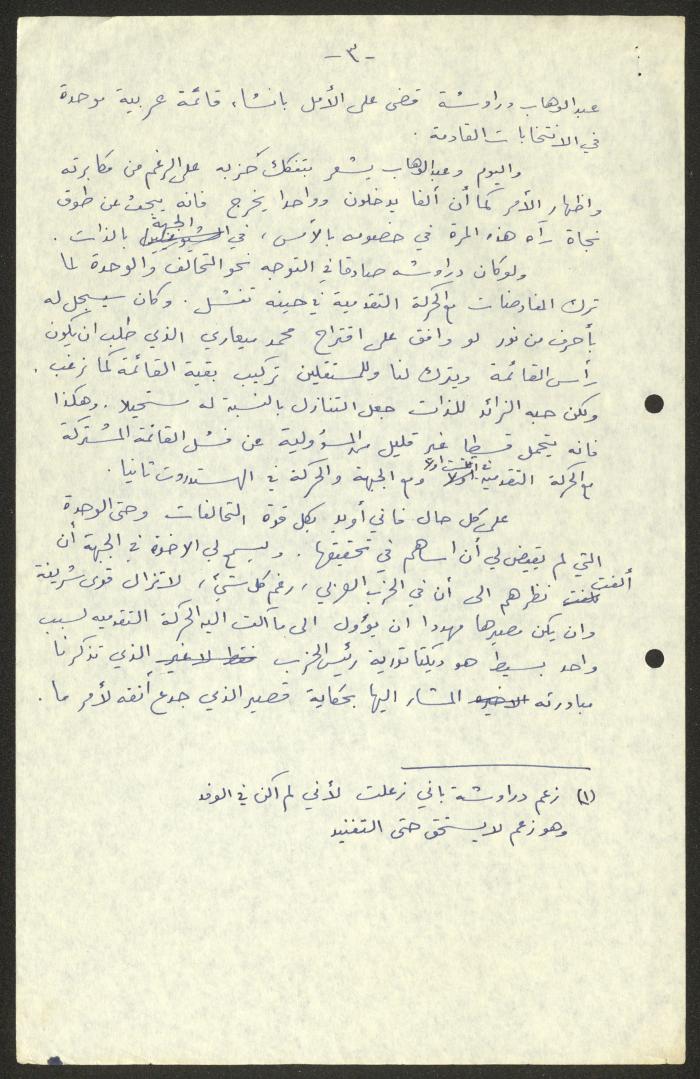 -٣-
عبدالوهاب دراوشة قضى على الأمل بانشاء قائمة عربية موحدة
في الانتخابات القادمة .
واليوم وعبدالوهاب يشعر بتفكك حزبه على الرغم من مكابرته
واظهار الأمر كما أن ألفا يدخلون وواحدا يخرج فانه يبحث عن طوق
نجاة رآه هذه المرة في خصومه بالأمس ، في الجبهة بالذات .
ولو كان دراوشه صادقا في التوجه نحو التحالف والوحدة لما
ترك المفاوضات مع الحركة التقدمية في حينه تفشل . وكان سيسجل له
بأحرف من نور لو وافق على اقتراح محمد ميعاري الذي طلب ان يكون
رأس القائمة ويترك لنا وللمستقلين تركيب بقية القائمة كما نرغب .
ولكن حبه الزائد للذات جعل التنازل بالنسبة له مستحيلا . وهكذا
فانه يتحمل قسطا غير قليل من المسؤولية عن فشل القائمة المشتركة
مع الحركة التقدمية أولا ومع الجبهة والحركة في الهستدروت ثانيا .
على كل حال فاني أؤيد بكل قوة التحالفات وحتى الوحدة
التي لم يقيض لي أن اساهم في تحقيقها . وليسمح لي الاخوة في الجبهة أن
ألفت نظرهم الى أن في الحزب العربي ، رغم كل شيء ، لا تزال قوى شريفة
وان يكن مصيرها مهددا ان يؤول الى ما آلت اليه الحركة التقدميه لسبب
واحد بسيط هو ديكتاتورية رئيس الحزب فقط لا غير الذي تذكرنا
مبادرته الاخيره المشار اليها بحكاية قصير الذي جدع أنفه لأمر ما .
(١) زعم دراوشة باني زعلت لأني لم اكن في الوفد
وهو زعم لا يستحق حتى التفنيد